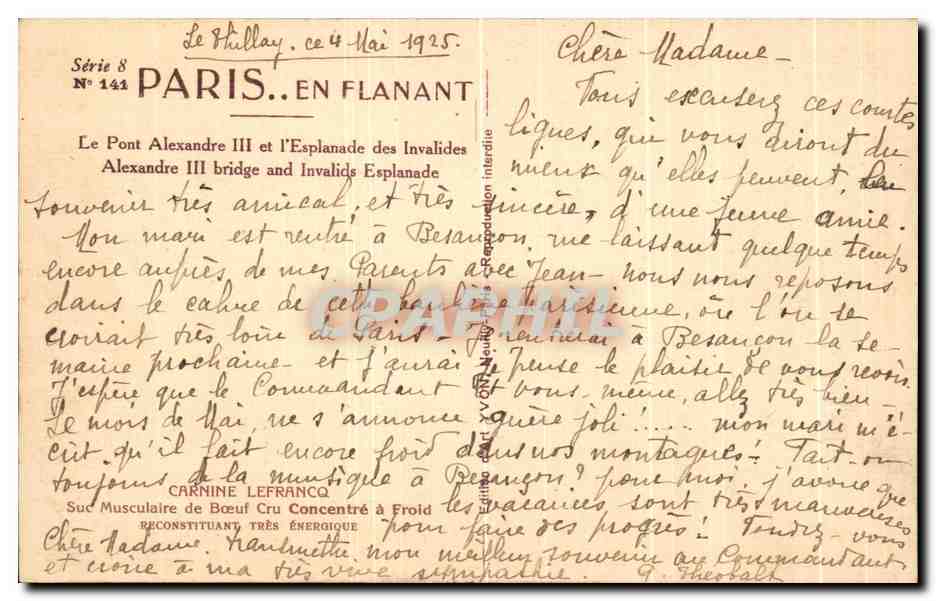 Le Thillay. ce 4 Mai 1925.
Série 8
N° 141 PARIS.. EN FLANANT
Le Pont Alexandre III et l'Esplanade des Invalides
Alexandre III bridge and Invalids Esplanade
Chère Madame -
Vous excuserez ces courtes
lignes, qui vous diront du
mieux qu'elles peuvent, le
souvenir très amical, et très sincère, d'une jeune amie.
Mon mari est rentré à Besançon, me laissant quelque temps
encore auprès de mes Parents avec Jean - nous nous reposons
dans le calme de cette banlieue parisienne, où l'on se
croirait très loin de Paris - Je rentrerai à Besançon la se-
maine prochaine - et j'aurai je pense le plaisir de vous revoir.
J'espère que le Commandant et vous-même, allez très bien -
Le mois de Mai, ne s'annonce guère joli ! ..... mon mari m'é-
crit qu'il fait encore froid dans nos montagnes ! Fait-on
toujours de la musique à Besançon ? pour moi, j'avoue que
les vacances sont très mauvaises
pour faire des progrès ! Voudrez-vous
Chère Madame, transmettre mon meilleur souvenir au Commandant
et croire à ma très vive sympathie. G. Theobalt
CARNINE LEFRANCQ
Suc Musculaire de Bœuf Cru Concentré à Froid
RECONSTITUANT TRÈS ÉNERGIQUE
Edition d'Art YVON, Neuilly-Paris - Reproduction interdite
CPAPHIL